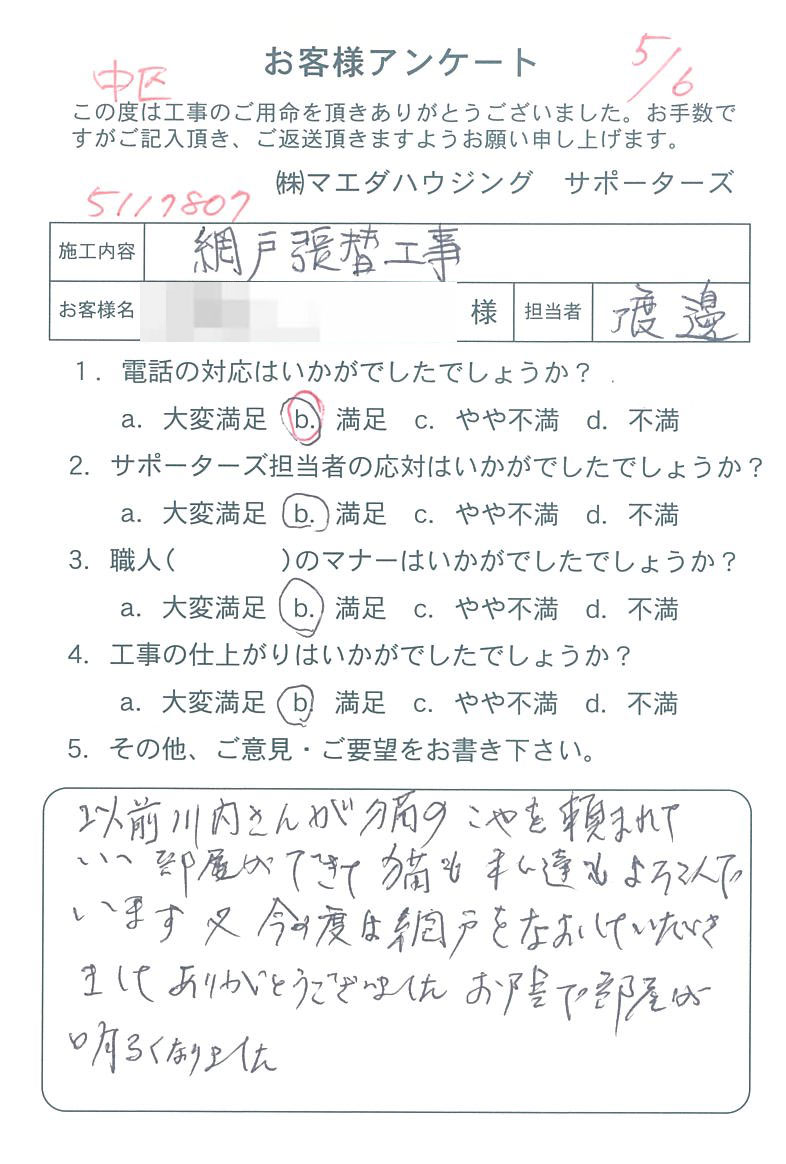 お客様アンケート
中区
5/6
この度は工事のご用命を頂きありがとうございました。お手数で
すがご記入頂き、ご返送頂きますようお願い申し上げます。
㈱マエダハウジング サポーターズ
5117807
施工内容 網戸張替工事
お客様名 様 担当者 渡邊
1. 電話の対応はいかがでしたでしょうか？
a. 大変満足 b. 満足 c. やや不満 d. 不満
2. サポーターズ担当者の応対はいかがでしたでしょうか？
a. 大変満足 b. 満足 c. やや不満 d. 不満
3. 職人( )のマナーはいかがでしたでしょうか？
a. 大変満足 b. 満足 c. やや不満 d. 不満
4. 工事の仕上がりはいかがでしたでしょうか？
a. 大変満足 b. 満足 c. やや不満 d. 不満
5. その他、ご意見・ご要望をお書き下さい。
以前川内さんが猫のこやを頼まれて
いい部屋ができて猫も私達もよろこんで
います 又 今の度は網戸をなおしていただき
ましてありがとうございました お陰で部屋が
明るくなりました